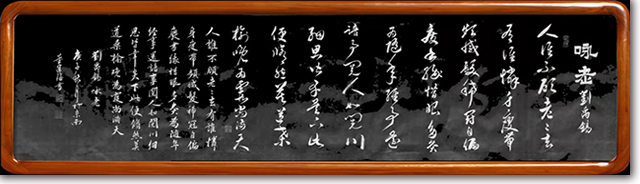 咏老 劉禹錫
人谁不顧老老去
有谁憐身瘦带
频减髮稀冠自偏
废书缘惜眼多灸
为随年经事还
谙事阅人如阅川
细思皆幸矣下此
便翛然莫道桑
榆晚为霞尚满天
人誰不顧老老去有誰憐
身瘦帶頻減髮稀冠自偏
廢書緣惜眼多灸為随年
經事還諳事閱人如閱川細
思皆幸矣下此便翛然莫
道桑榆晚為霞尚滿天
劉禹錫